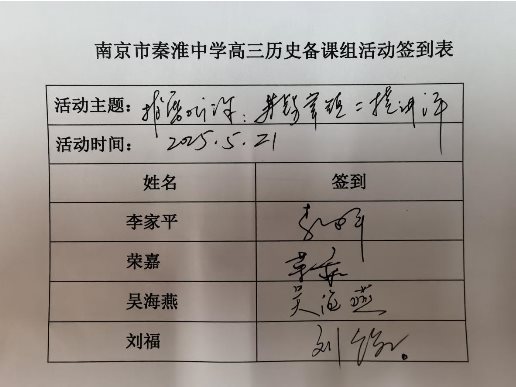 南京市秦淮中学高三历史备课组活动签到表
活动主题： 二模讲评
活动时间： 2025.5.21
姓名 签到
李家平
荣嘉 荣嘉
吴海燕 吴海燕
刘福 刘福